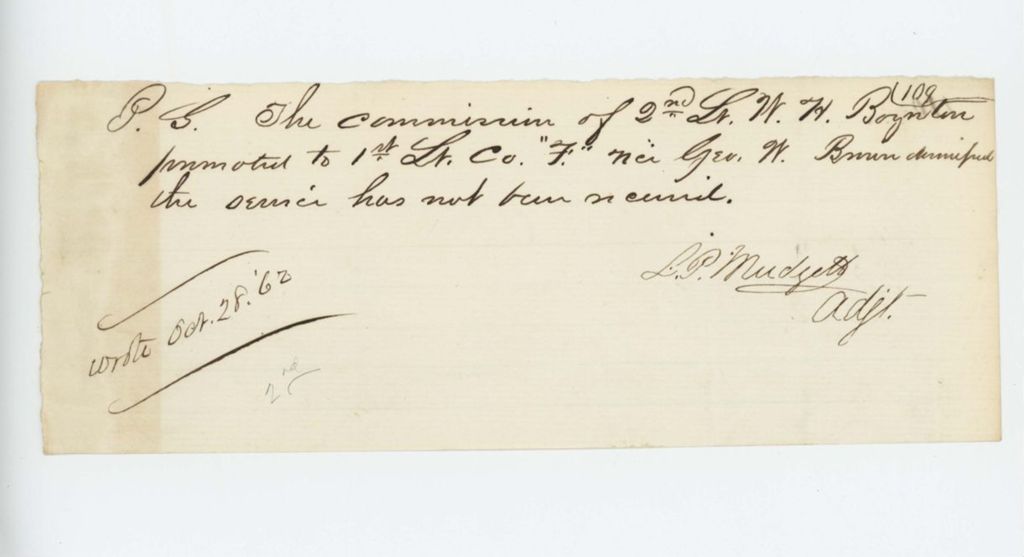 109
P. S. The commission of 2nd Lt. W. H. Boynton
promoted to 1st Lt. Co. "F." vice Geo. W. Brown dismissed
the service has not been received.
L. P. Mudgett
Adjt.
wrote Oct. 28. '62
2nd